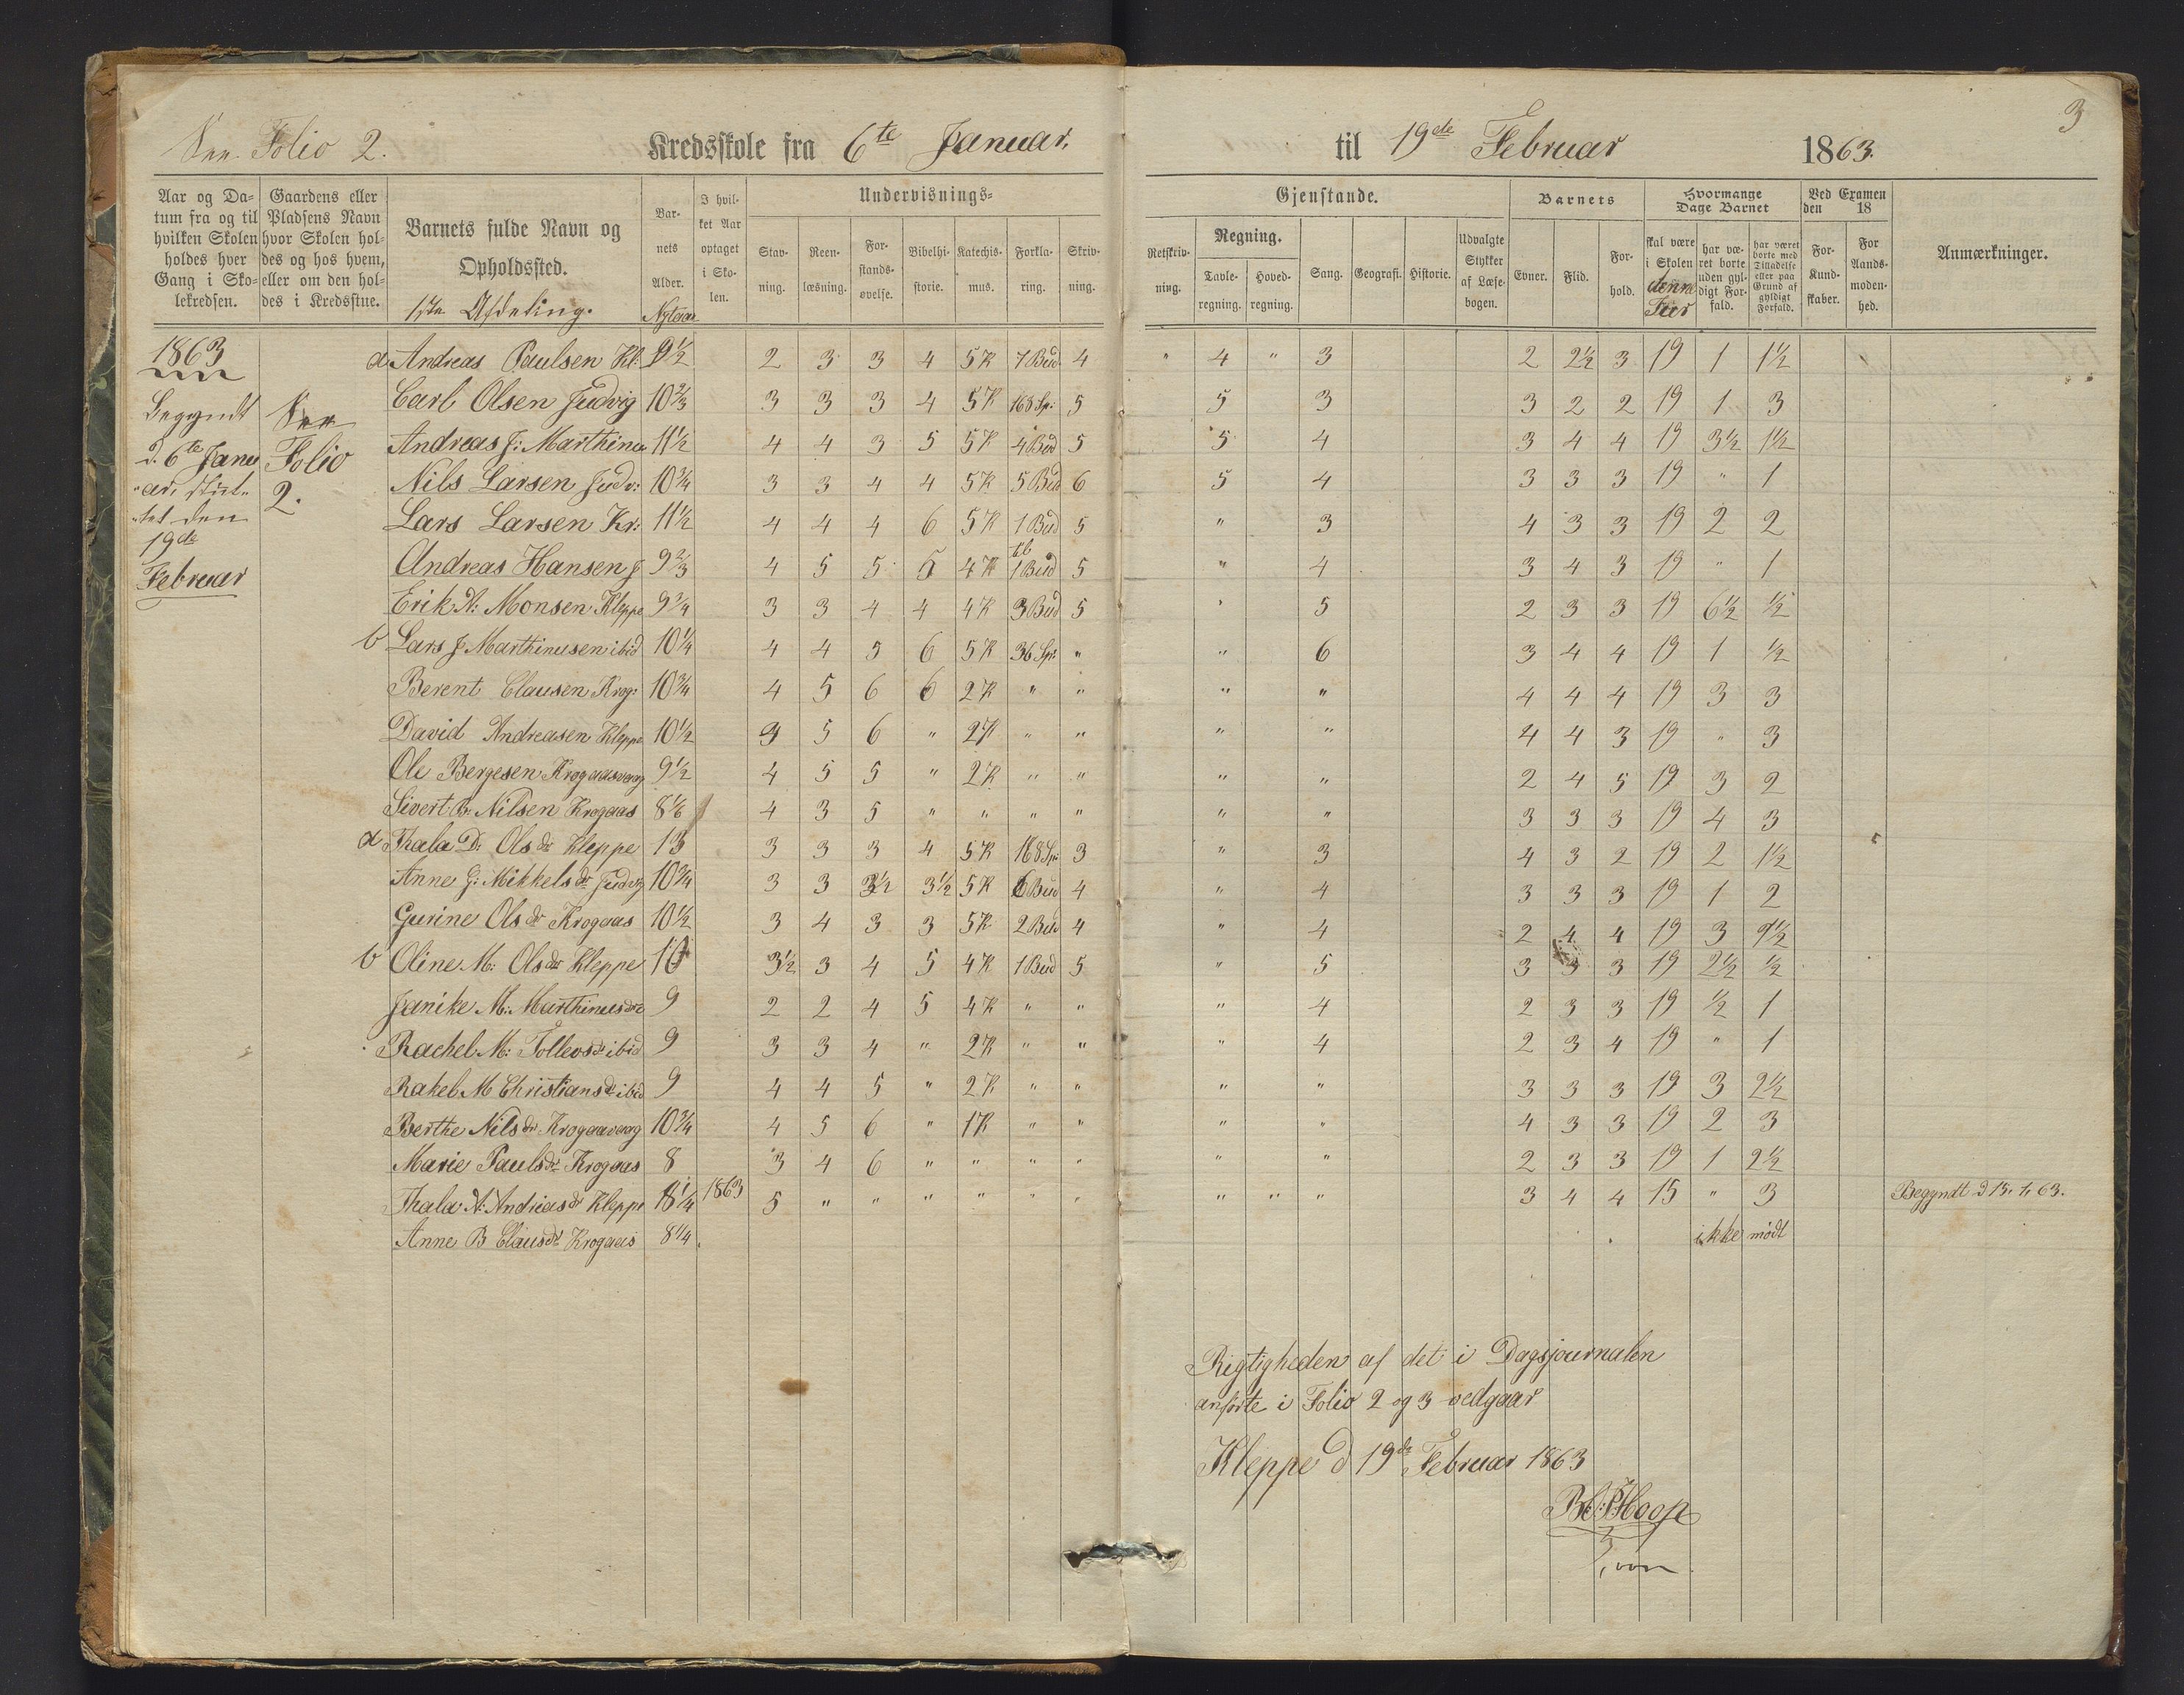 Folio 2.
Kredsskole fra 6te Januar.
til 19de Februar 1863.
3
Aar og Da-
tum fra og til
hvilken Skolen
holdes hver
Gang i Sko-
lekredsen.
Gaardens eller
Pladsens Navn
hvor Skolen hol-
des og hos hvem,
eller om den hol-
des i Kredsstue.
Barnets fulde Navn og
Opholdssted.
1ste Afdeling.
Bar-
nets
Alder.
I hvil-
ket Aar
optaget
i Sko-
len.
Undervisnings-
Stav-
ning.
Reen-
læsning.
For-
stands-
øvelse.
Bibelhi-
storie.
Katechis-
mus.
Forkla-
ring.
Skriv-
ning.
Gjenstande.
Retskriv-
ning.
Regning.
Tavle-
regning.
Hoved-
regning.
Sang.
Geografi.
Historie.
Udvalgte
Stykker
af Læse-
bogen.
Barnets
Evner.
Flid.
For-
hold.
Hvormange
Dage Barnet
skal være
i Skolen
denne
har væ-
ret borte
uden gyl-
digt For-
fald.
har været
borte med
Tilladelse
eller paa
Grund af
gyldigt
Forfald.
Ved Examen
den 18
For-
Kund-
skaber.
For
Aands-
moden-
hed.
Anmærkninger.
1863
Begyndt
d. 6te Janu
ar, slut-
tet den
19de
Februar
Folio
2.
a Andreas Paulsen Kl: 9½ 2 3 3 4 5K 7 Bud 4 " 4 " 3 2 2½ 3 19 1 1½
Carl Olsen Judvig 10⅔ 3 3 3 4 5K 168 Sp: 5 5 3 3 2 2 19 1 3
Andreas J: Marthinu 11½ 4 4 3 5 5K 4 Bud 5 5 4 3 4 4 19 3½ 1½
Nils Larsen Judv: 10¾ 3 3 4 4 5K 5 Bud 6 5 4 3 3 3 19 " 1
Lars Larsen Kr: 11½ 4 4 4 6 5K 1 Bud 5 " 3 4 3 3 19 2 2
Andreas Hansen J 9⅔ 4 5 5 5 4K til 1 Bud 5 " 4 3 4 3 19 " 1
Erik A: Monsen Kleppe 9¾ 3 3 4 4 4K 3 Bud 5 " 5 2 3 3 19 6½ ½
b Lars J Marthinusen ibid 10¼ 4 4 5 6 5K 36 Sp: " " 6 3 4 4 19 1 ½
Berent Clausen Krog: 10¾ 4 5 6 6 2K " " " " 4 4 4 19 3 3
David Andreasen Kleppe 10½ 5 6 " 2K " " " " 4 4 3 19 " 3
Ole Bergesen Krogaasvaag 9½ 4 5 5 " 2K " " " " 2 4 5 19 3 2
Sivert B: Nilsen Krogaas 8⅙ 4 3 5 " " " " " " 3 3 3 19 4 3
a Thala D: Olsdr Kleppe 13 3 3 3 4 5K 168 Sp: 3 " 3 4 3 2 19 2 1½
Anne G: Mikkelsdr Judvg 10¾ 3 3 3½ 3½ 5K 6 Bud 4 " 4 3 3 3 19 1 2
Gurine Olsdr Krogaas 10½ 3 4 3 3 5K 2 Bud 4 " 4 2 4 4 19 3
b Oline M: Olsdr Kleppe 10 3½ 3 4 5 4K 1 Bud 5 " 5 3 3 3 19 2½ ½
Janike M: Marthinusdr 9 2 2 4 5 4K " " " 4 2 3 3 19 ½ 1
Rachel M: Tolleusdr ibid 9 3 3 4 " 2K " " " 4 2 3 4 19 " 1
Rakel M Christiansdr ibid 9 4 4 5 " 2K " " " " 3 3 3 19 3 2½
Berthe Nilsdr Krogaasvaag 10¾ 4 5 6 " 1K " " " " 4 3 3 19 2 3
Marie Paulsdr Krogaas 8 3 4 6 " " " " " " 2 3 3 19 1 2½
Thala A: Andreasdr Kleppe 8¼ 1863 5 " " " " " " " " " 3 4 4 15 " 3 Begyndt d 15. 1. 63.
Anne B Clausdr Krogaas 8¼ ikke mødt
Rigtigheden af det i Dagsjournalen
anførte i Folio 2 og 3 vedgaar
Kleppe d 19de Februar 1863